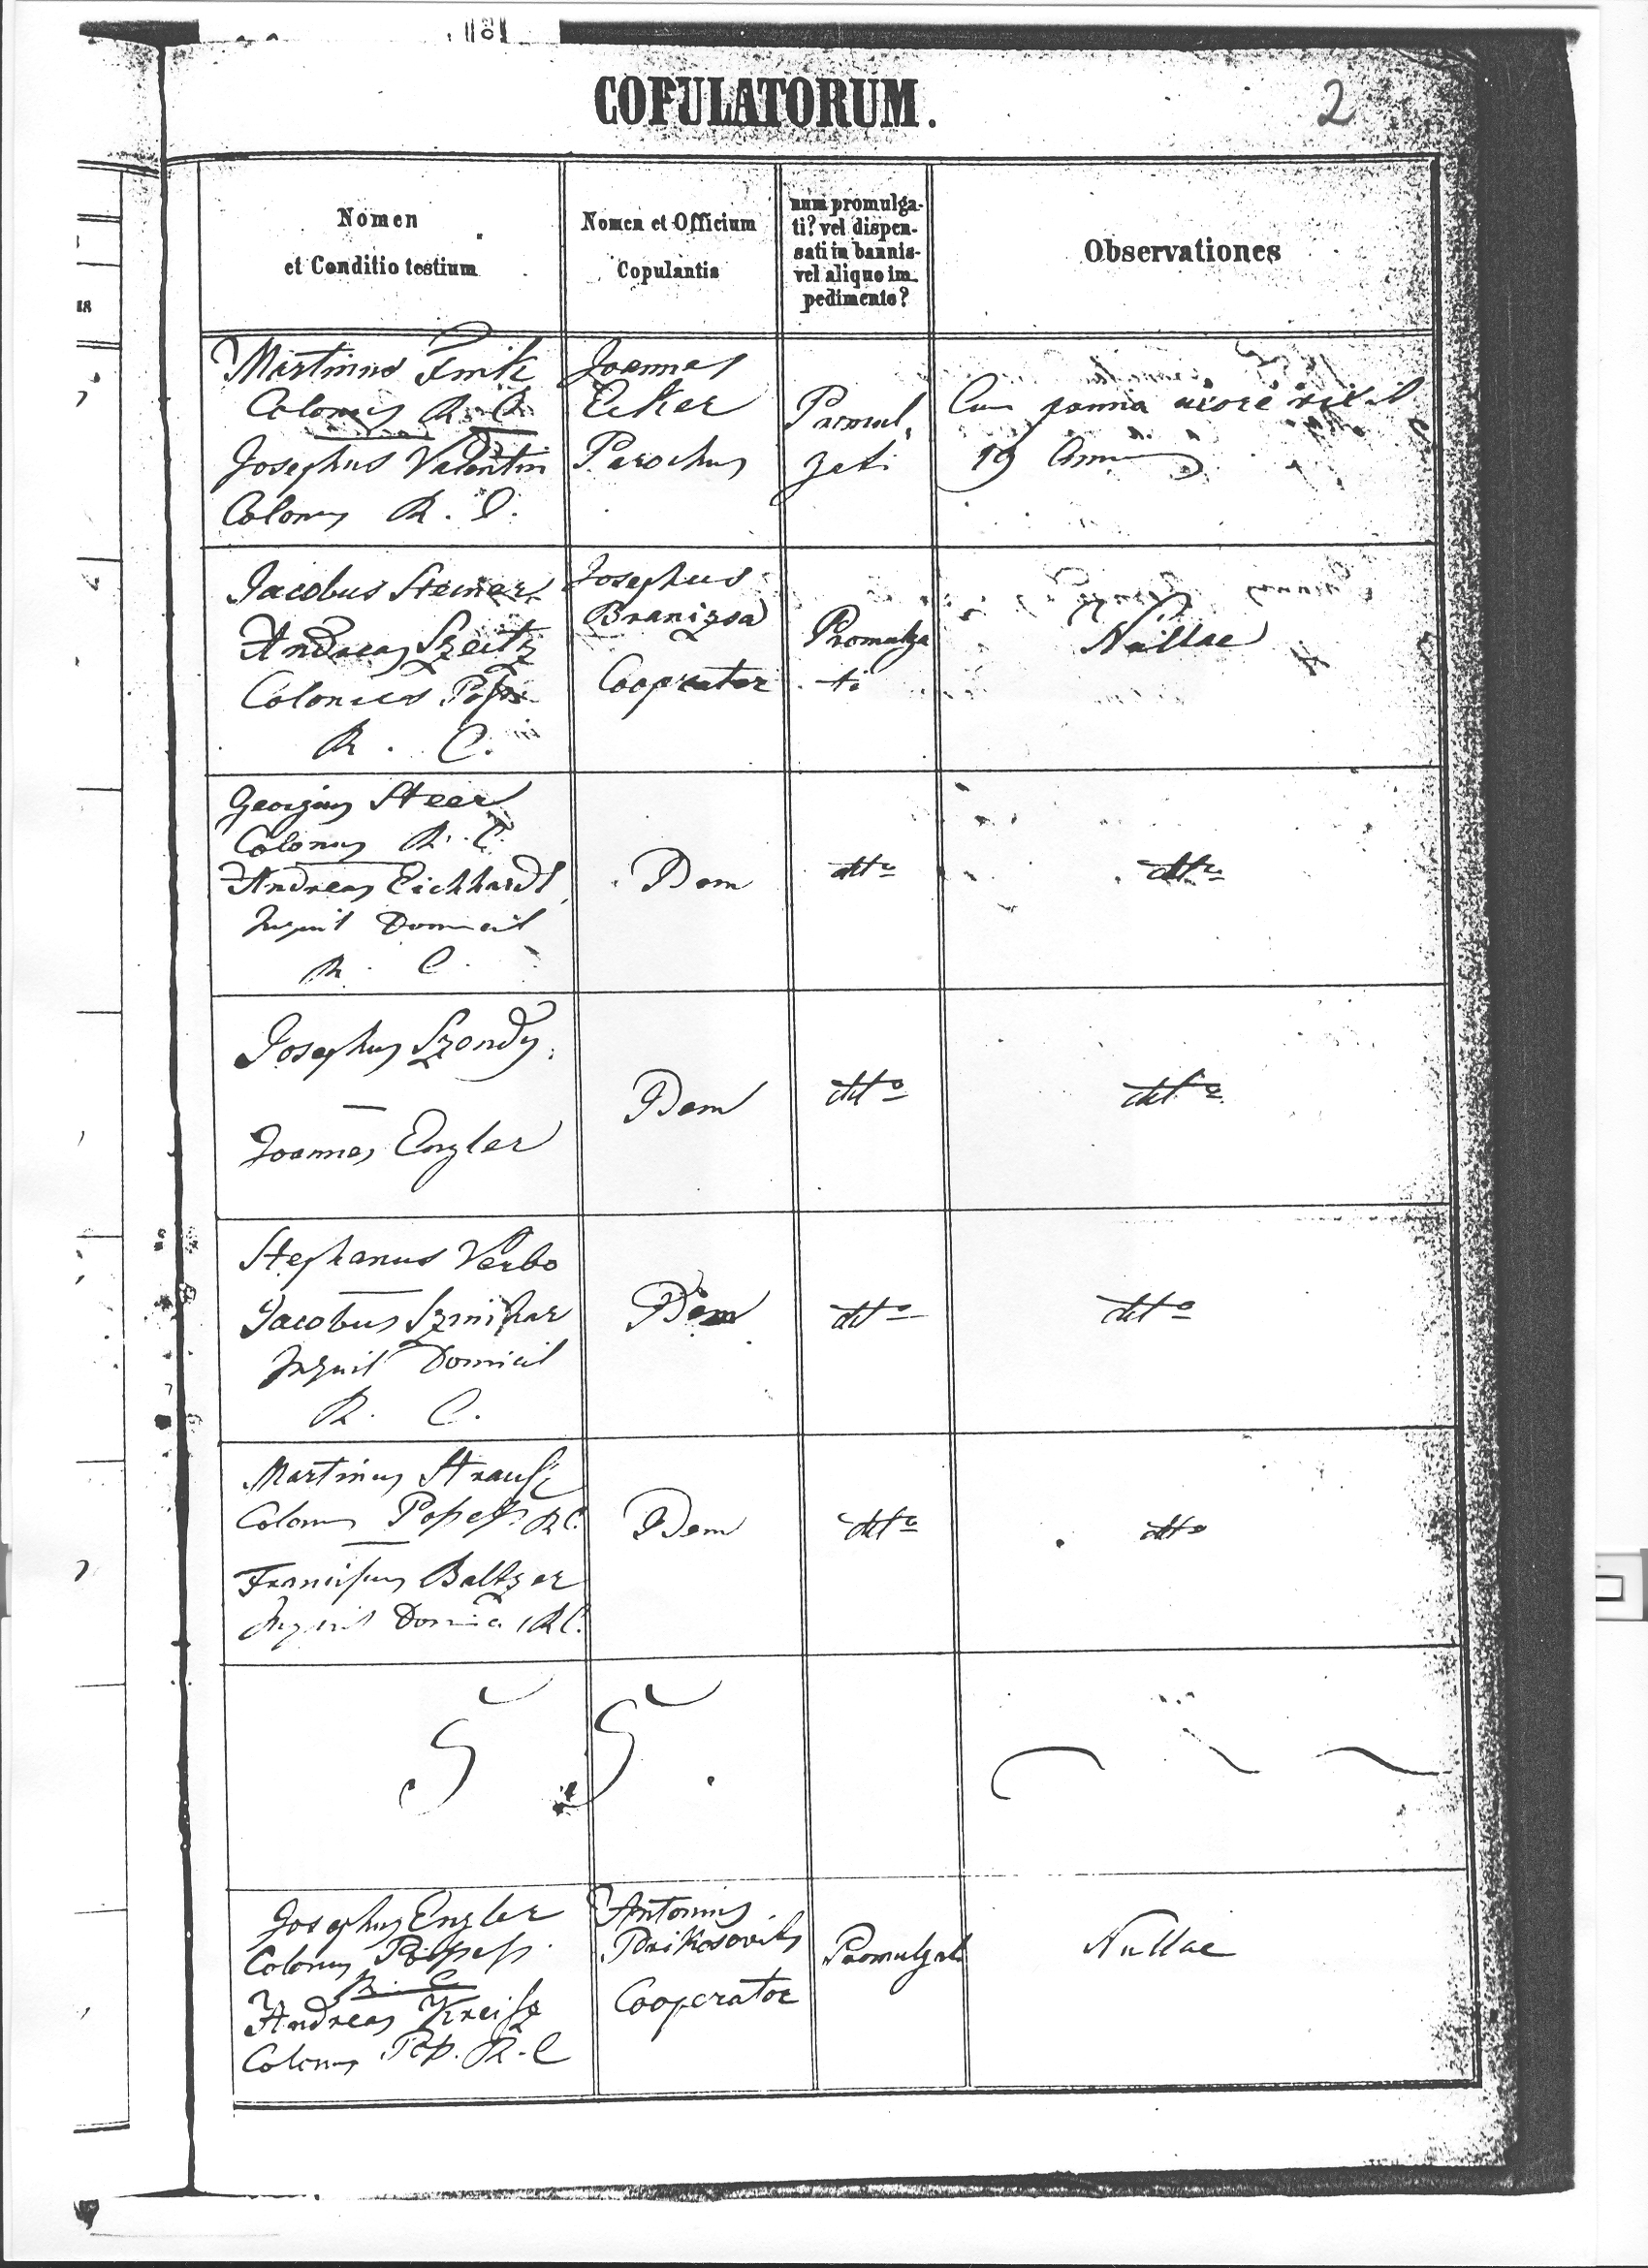 COPULATORUM.
2
Nomen
et Conditio testium
Nomen et Officium
Copulantis
num promulga-
ti? vel dispen-
sati in bannis
vel aliquo im-
pedimento?
Observationes
Martinus Fink
Colonus R. C.
Josephus Valentin
Colonus R. C.
Joannes
Ecker
Parochus
Promul
gati
Cum
19
Jacobus Steiner
Andreas Szeitz
Colonus
R. C.
Josephus
Branizsa
Cooperator
Promulga
ti
Nullae
Georgius Steer
Colonus R. C.
Andreas Eichhardt
Inquil Domicil
R. C.
Dem
dtto
dtto
Josephus Szondy
Joannes Engler
Dem
dtto
dtto
Stephanus Verbo
Jacobus
Inquil Domicil
R. C.
Dem
dtto
dtto
Martinus Strausz
Colonus Possess. RC.
Franciscus Baltzer
Inquil RC.
Dem
dtto
dtto
Josephus Engler
Colonus Possess.
R. C.
Andreas Kreisz
Colonus R. C
Antonius
Prikosovits
Cooperator
Promulgati
Nullae